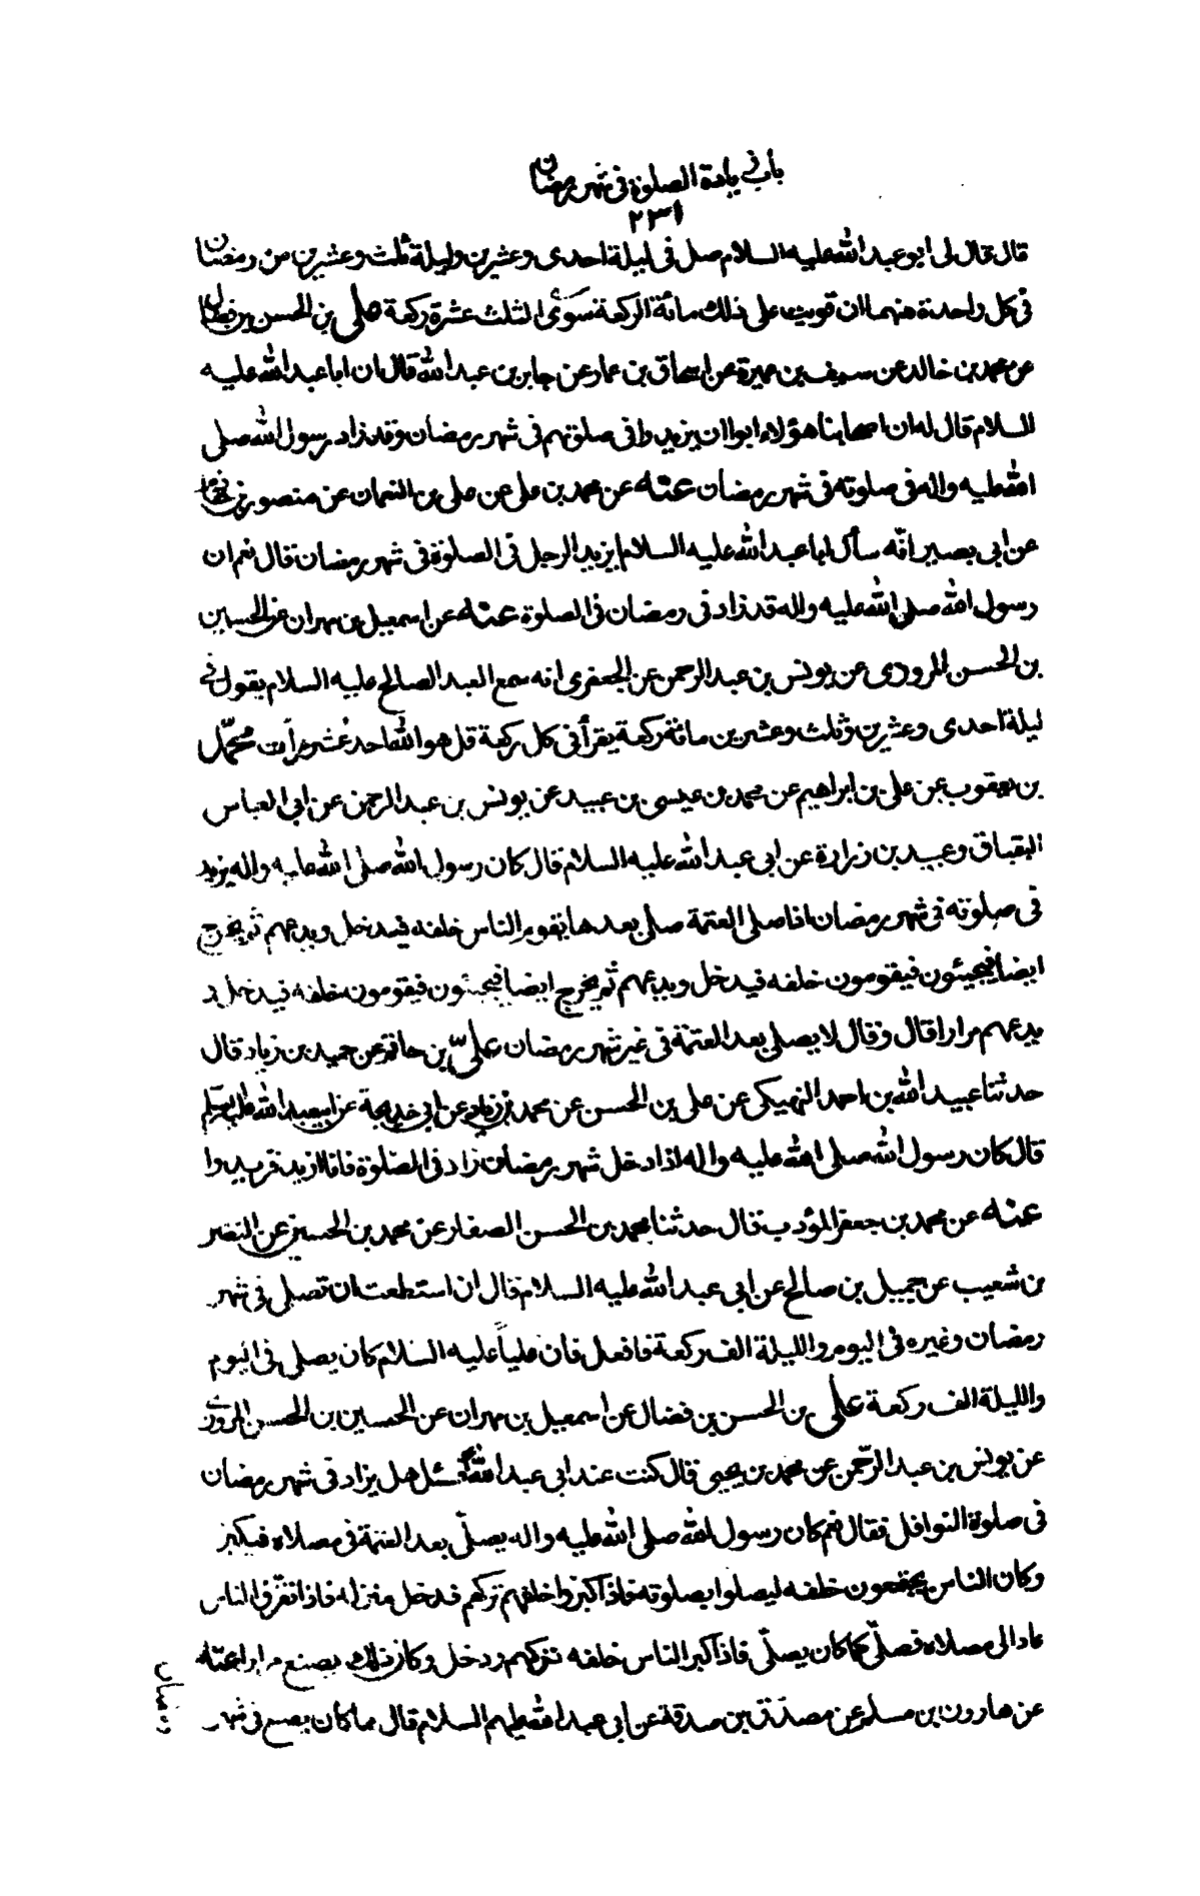 باب فى زيادة الصلوة فى شهر رمضان
٢٣١
قال قال لى ابو عبد الله عليه السلام صل فى ليلة احدى وعشرين وليلة ثلث وعشرين من رمضان
فى كل واحدة منهما ان قويت على ذلك مائة الركعة سوى الثلث عشرة ركعة على بن الحسن بن فضال
عن محمد بن خالد عن سيف بن عميرة عن اسحاق بن عمار عن جابر بن عبد الله قال ان ابا عبد الله عليه
السلام قال له ان اصحابنا هؤلاء ابوا ان يزيدوا فى صلوتهم فى شهر رمضان وقد زاد رسول الله صلى
الله عليه واله فى صلوته فى شهر رمضان عنه عن محمد بن على عن على بن النعمان عن منصور بن
عن ابى بصير انّه سأل ابا عبد الله عليه السلام ايزيد الرجل فى الصلوة فى شهر رمضان قال نعم ان
رسول الله صلى الله عليه واله قد زاد فى رمضان فى الصلوة عنه عن اسمعيل بن مهران عن الحسين
بن الحسن المرودى عن يونس بن عبد الرحمن عن الجعفرى انه سمع العبد الصالح عليه السلام يقول فى
ليلة احدى وعشرين وثلث وعشرين مائة ركعة يقرأ فى كل ركعة قل هو الله احد عشر مرات محمّد
بن يعقوب عن على بن ابراهيم عن محمد بن عيسى بن عبيد عن يونس بن عبد الرحمن عن ابى العباس
البقباق وعبيد بن زرارة عن ابى عبد الله عليه السلام قال كان رسول الله صلى الله عليه واله يزيد
فى صلوته فى شهر رمضان اذا صلى العتمة صلى بعدها يقوم الناس خلفه فيدخل ويدعهم ثم يخرج
ايضا فيجيئون فيقومون خلفه فيدخل ويدعهم ثم يخرج ايضا فيجيئون فيقومون خلفه فيدخل و
يدعهم مرارا قال وقال لا يصلى بعد العتمة فى غير شهر رمضان علىّ بن حاتم عن حميد بن زياد قال
حدثنا عبيد الله بن احمد النهيكى عن على بن الحسن عن محمد بن زياد عن ابى خديجة عن ابى عبد الله عليه السلم
قال كان رسول الله صلى الله عليه واله اذا دخل شهر رمضان زاد فى الصلوة فانا ازيد فزيدوا
عنه عن محمد بن جعفر المؤدب قال حدثنا محمد بن الحسن الصفار عن محمد بن الحسين عن النضر
بن شعيب عن جميل بن صالح عن ابى عبد الله عليه السلام قال ان استطعت ان تصلى فى شهر
رمضان وغيره فى اليوم والليلة الف ركعة فافعل فان علياً عليه السلام كان يصلى فى اليوم
والليلة الف ركعة على بن الحسن بن فضال عن اسمعيل بن مهران عن الحسين بن الحسن المروزى
عن يونس بن عبد الرّحمن عن محمد بن يحيى قال كنت عند ابى عبد الله ع فسئل هل يزاد فى شهر رمضان
فى صلوة النوافل فقال نعم كان رسول الله صلى الله عليه واله يصلّى بعد العتمة فى مصلاه فيكثر
وكان الناس يجتمعون خلفه ليصلوا بصلوته فاذا كثروا خلفه تركهم فدخل منزله فاذا تفرّق الناس
عاد الى مصلاه فصلّى كما كان يصلّى فاذا كثر الناس خلفه تركهم ودخل وكان ذلك يصنع مرارا عنه
عن هارون بن مسلم عن مصدّق بن صدقة عن ابى عبد الله عليهم السلام قال مما كان يصنع فى شهر
رمضان